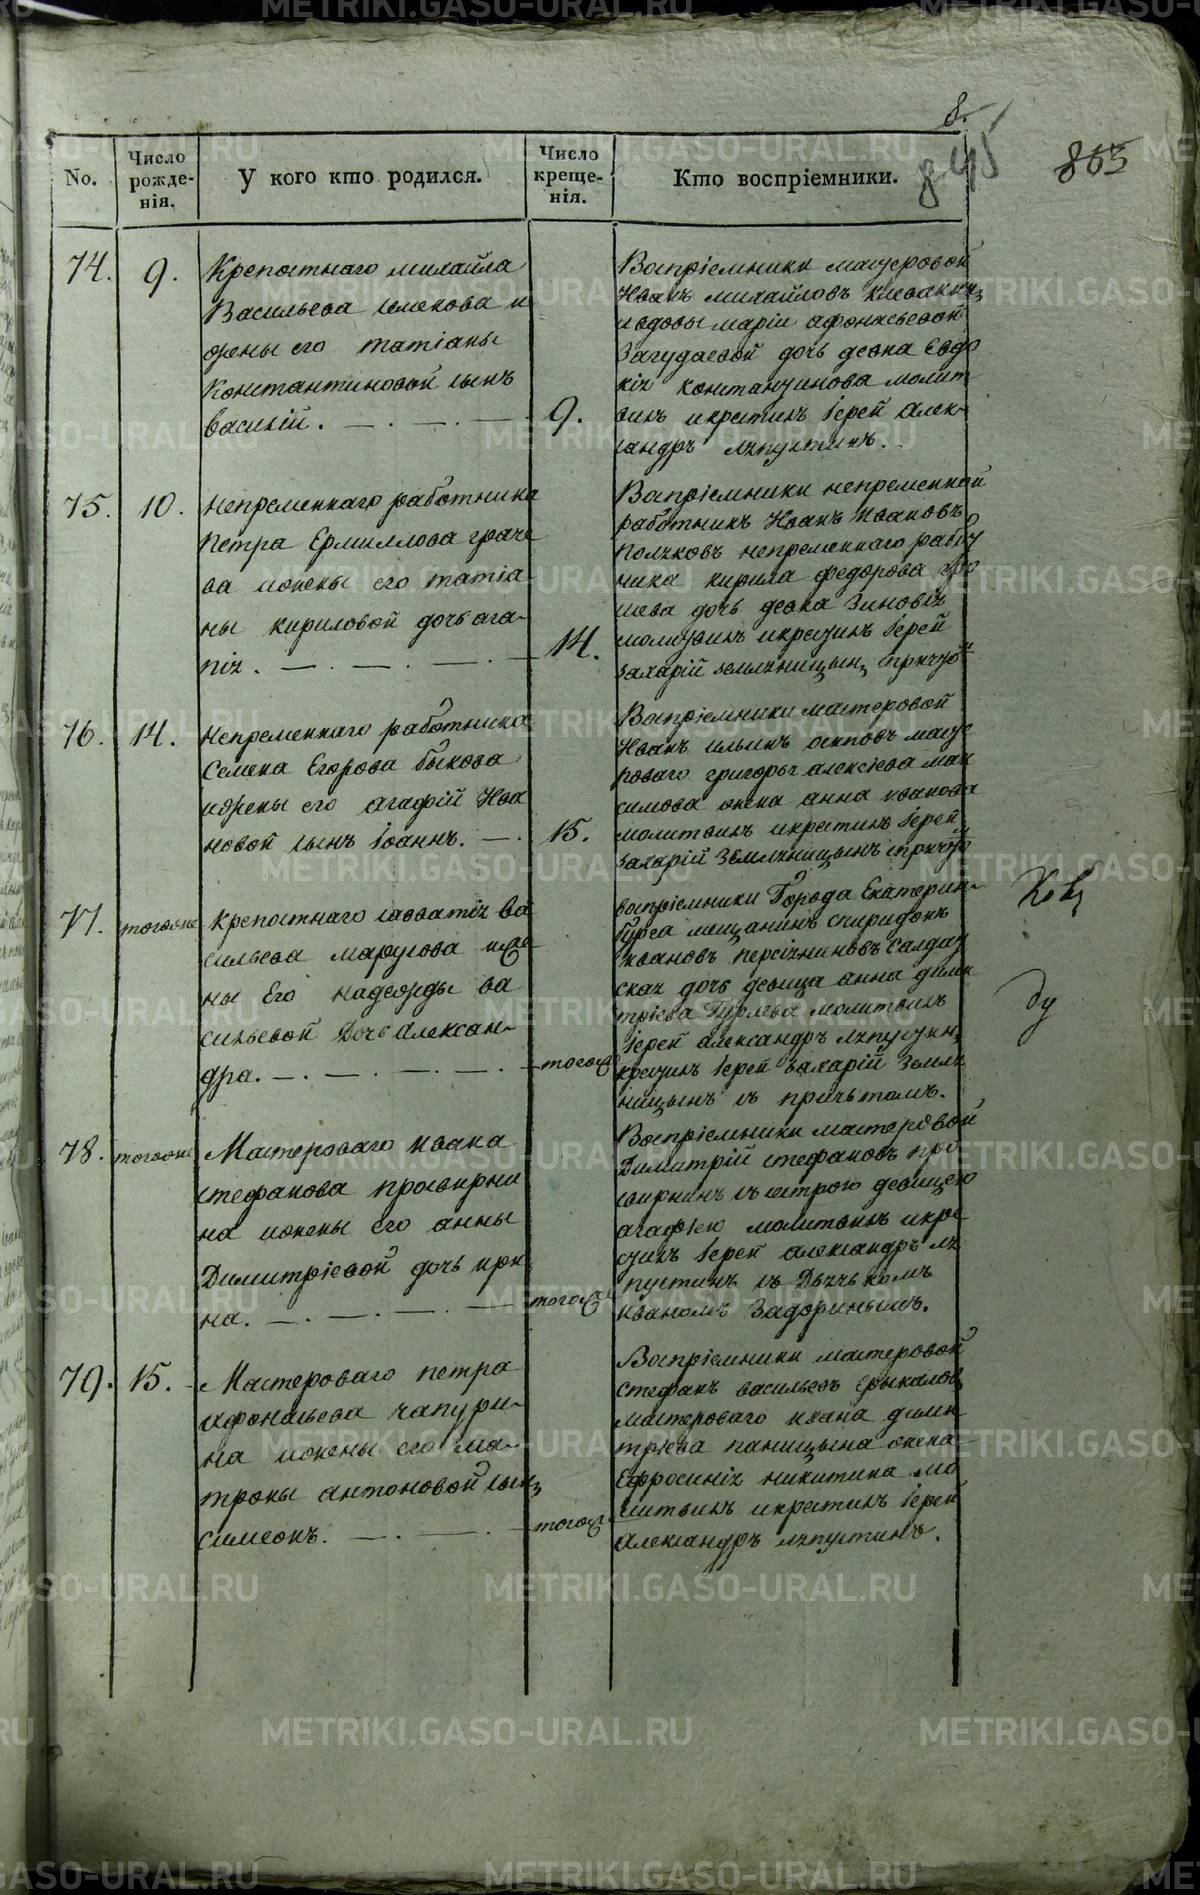 8.
845
863
No.
Число рожде-нія.
У кого кто родился.
Число креще-нія.
Кто воспріемники.
74.
9.
Крепостнаго михайла
Васильева и
жены его татіаны
Константиновой сынъ
василій.
9.
Воспріемники мастеровой
Иванъ михайловъ
и вдовы маріи афонасьевой
Загудаевой дочь девка Евдо
кія константинова молит
вилъ и крестилъ Іерей Алек-
сандръ ляпустинъ.
75.
10.
Непременнаго работника
Петра Ермиллова граче
ва и жены его татіа
ны кириловой дочь ага-
пія.
14.
Воспріемники непременной
работникъ Иванъ Ивановъ
Поляковъ непременнаго работ
ника кирила федорова
шева дочь девка Зиновія
молитвилъ и крестилъ Іерей
Захарій земляницынъ
76.
14.
Непременнаго работника
Семена Егорова быкова
и жены его агафіи Ива
новой сынъ іоаннъ.
15.
Воспріемники мастеровой
Иванъ ильинъ осиповъ масте
роваго григорья алексіева мак
симова жена анна иванова
молитвилъ и крестилъ Іерей
Захарій Земляницынъ
77.
тогоже
Крепостнаго савватія ва
сильева маругова и же
ны Его надежды ва
сильевой Дочь Алексан-
дра.
тогож
воспріемники Города Екатерин-
бурга мещанинъ спиридонъ
ивановъ персіяниновъ салдат
ская дочь девица анна дими
тріева Гурлева молитвилъ
Іерей александръ ляпустин
крестилъ Іерей Захарій Земля
ницынъ съ причьтомъ.
78.
тогоже
Мастероваго ивана
стефанова просвирни
на и жены его анны
Димитріевой дочь ири
на.
тогож
Воспріемники мастеровой
Димитрій стефановъ про
свирнинъ съ сестрою девицею
агафіею молитвилъ и кре
стилъ Іерей александръ ля
пустинъ съ Дьячькомъ
иваномъ Задоринымъ.
79.
15.
Мастероваго петра
афонасьева чапури-
на и жены его ма-
троны антоновой сынъ
симеонъ.
тогож
Воспріемники мастеровой
стефанъ васильевъ ерыкалов
мастероваго ивана дими
тріева паницына жена
Ефросинія никитина мо
литвилъ и крестилъ Іерей
Александръ ляпустинъ.